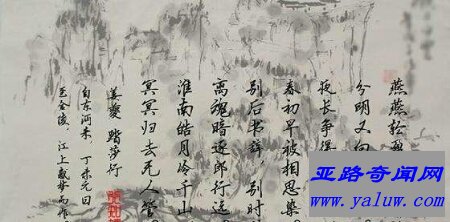 燕燕轻
分明又向
夜长争得
春初早被相思染
别后书辞 别时
离魂暗逐郎行远
淮南皓月冷千山
冥冥归去无人管
姜夔 踏莎行
自东沔来，丁未元日
至金陵，江上感梦而作
亚路奇闻网
www.yaluw.com